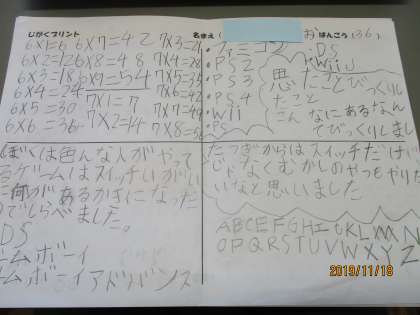 じがくプリント
なまえ（
お
ばんごう（36）
6×1=6 6×7=42 7×3=21
6×2=12 6×8=48 7×4=28
6×3=18 6×9=54 7×5=35
6×4=24 7×1=7 7×6=42
6×5=30 7×2=14 7×7=49
6×6=36 7×8=56
・ファミコン ・DS
・PS2 ・WiiU
・PS3
・PS4
・Wii
・PC
思たことびっくりし
たこと
こんなにあるなん
てびっくりしました
ぼくは色んな人がやって
るゲームはスイッチいがい
に何があるかきになった
のでしらべました。
DS
ームボーイ
ームボーイアドバンス
たつぎからはスイッチだけ
じゃなくむかしのやつもやりた
いなと思いました
ABCEFGHIJKLMN
OPQRSTUVWXYZ
2019/11/18